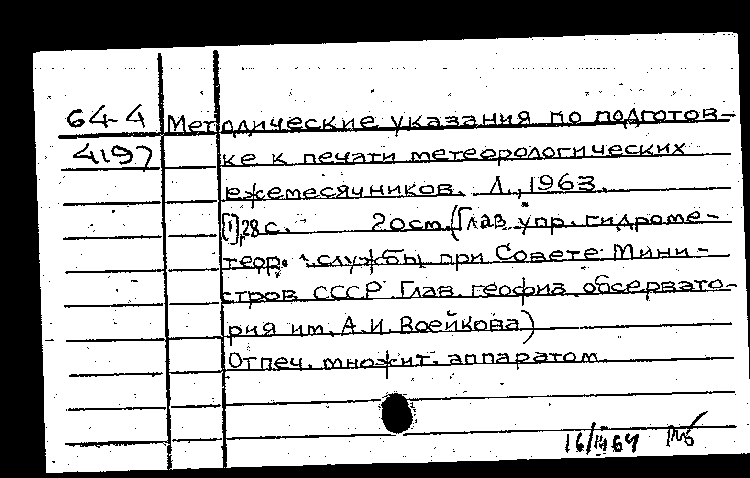 64-4 Методические указания по подготов-
4197 ке к печати метеорологических
ежемесячников. Л., 1963.
[1], 28 с. 20 см. (Глав. упр. гидроме-
теор. службы при Совете Мини-
стров СССР. Глав. геофиз. обсервато-
рия им. А. И. Воейкова)
Отпеч. множит. аппаратом.
16/III 64